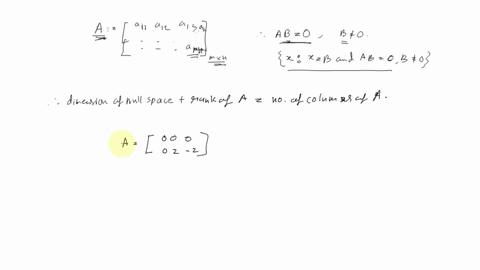 A := [ a11 a12 a13 a
: : . amn ] m×n
∴ AB = 0, B ≠ 0.
{ x : x = B and AB = 0, B ≠ 0 }
∴ dimension of null space + rank of A = no. of columns of A.
A = [ 0 0 0
0 2 -2 ]